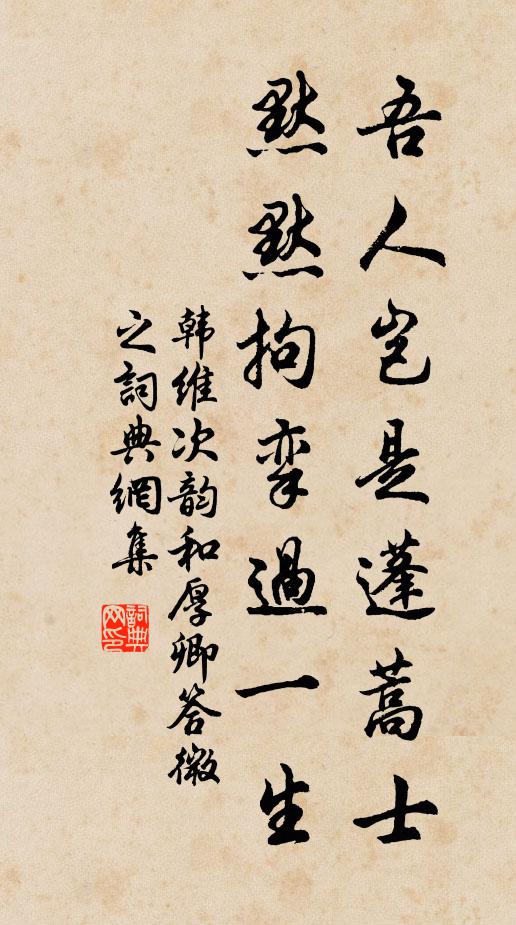 吾人岂是蓬蒿士
默默拘挛過一生
韩维次韵和厚卿答微
之詞典網集
詞典
网印